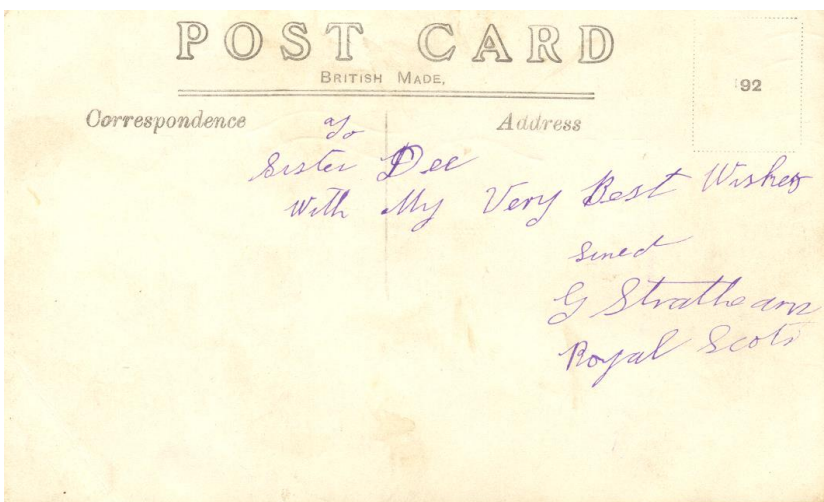 POST CARD
BRITISH MADE,
92
Correspondence
Address
To
Sister Dee
With My Very Best Wishes
Sined
G Strathearn
Royal Scots